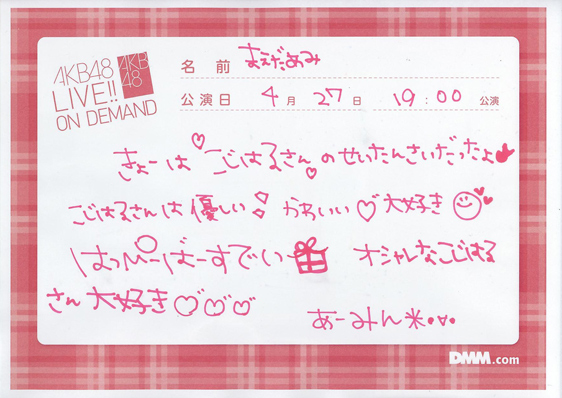 AKB48
LIVE!!
ON DEMAND
AKB
48
名前 まえだあみ
公演日 4月27日 19:00 公演
きょーは♡こじはるさん♡のせいたんさいだったよ
こじはるさんは優しい! かわいい♡大好き
はっぴーばーすでい オシャレなこじはる
さん大好き♡♡♡
あーみん米
DMM.com